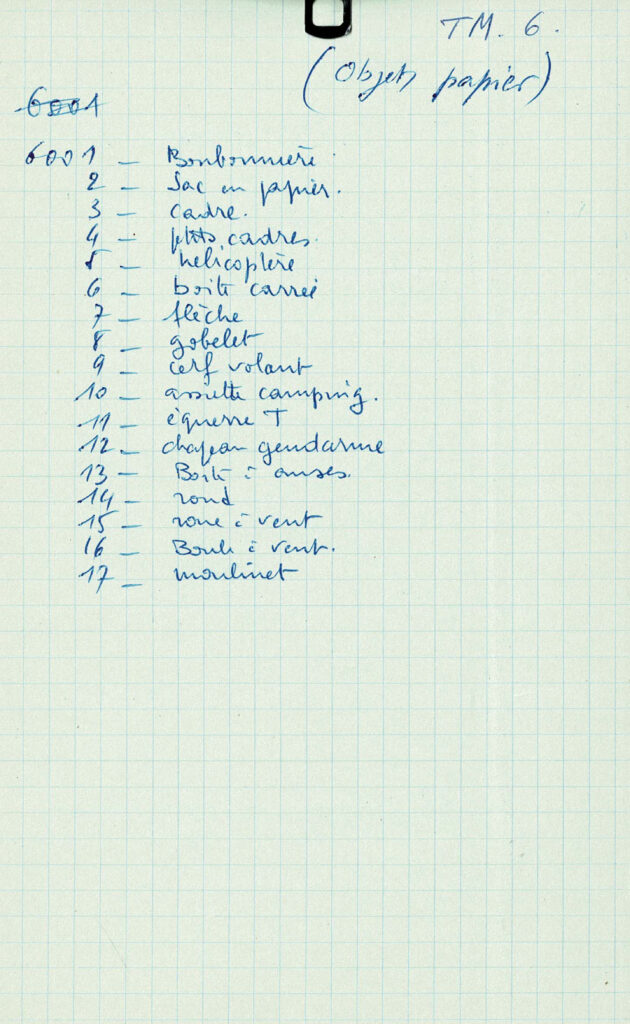 TM. 6.
(Objets papier)
6001
6001 – Bonbonnière
2 – Sac en papier.
3 – cadre.
4 – ptits cadres.
5 – hélicoptère
6 – boite carrée
7 – flèche
8 – gobelet
9 – cerf volant
10 – assiette camping.
11 – équerre T
12 – chapeau gendarme
13 – Boite à anses.
14 – rond
15 – roue à vent
16 – Boule à vent.
17 – moulinet